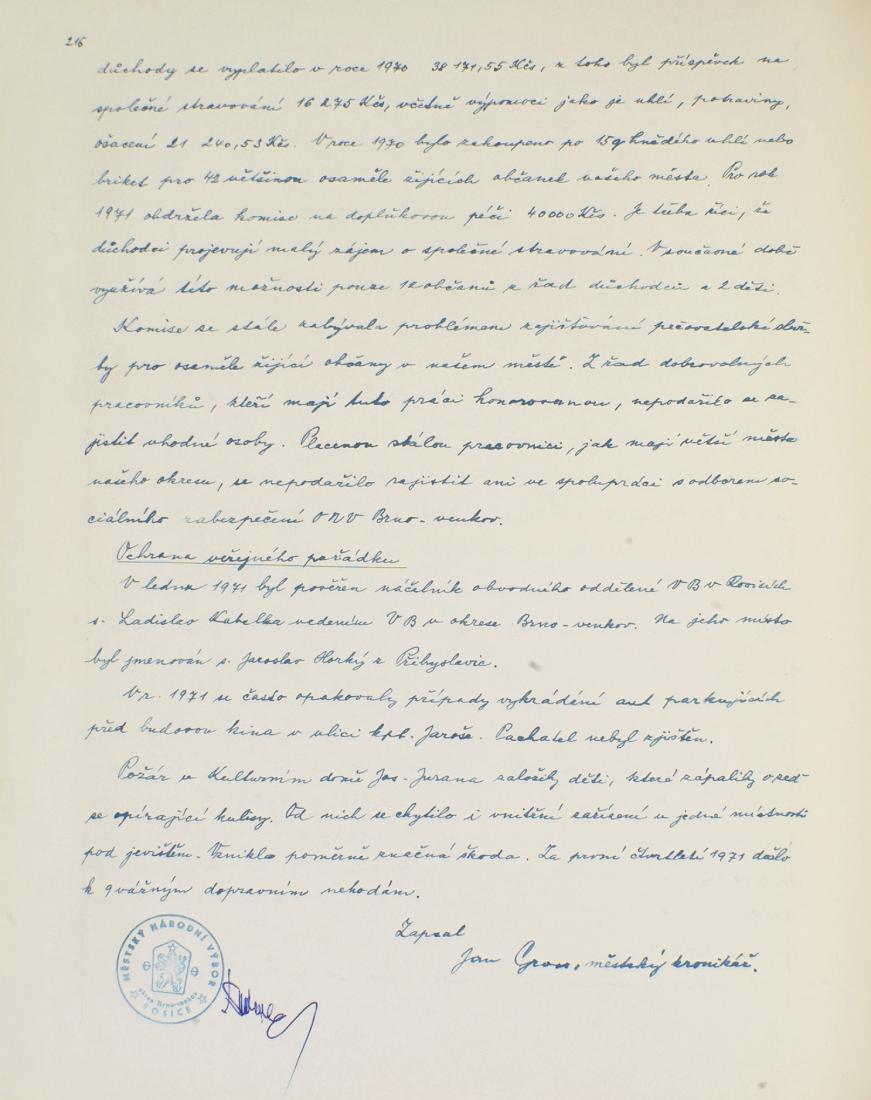 216
důchody se vyplatilo v roce 1970 38 171,55 Kčs, z toho byl příspěvek na
společné stravování 16 275 Kčs, včetně výpomoci jako je uhlí, potraviny,
ošacení 21 240,53 Kčs. V roce 1970 bylo zakoupeno po 15 q hnědého uhlí nebo
briket pro 42 většinou osaměle žijících občanek našeho města. Pro rok
1971 obdržela komise na doplňkovou péči 40 000 Kčs. Je třeba říci, že
důchodci projevují malý zájem o společné stravování. V současné době
využívá této možnosti pouze 12 občanů z řad důchodců a 2 děti.
Komise se stále zabývala problémem zajišťování pečovatelské služ-
by pro osaměle žijící občany v našem městě. Z řad dobrovolných
pracovníků, kteří mají tuto práci honorovanou, nepodařilo se za-
jistit vhodné osoby. Placenou stálou pracovnici, jak mají větší města
našeho okresu, se nepodařilo zajistit ani ve spolupráci s odborem so-
ciálního zabezpečení ONV Brno-venkov.
Ochrana veřejného pořádku
V lednu 1971 byl pověřen náčelník obvodního oddělení VB v Rosicích
s. Ladislav Kabelka vedením VB v okrese Brno-venkov. Na jeho místo
byl jmenován s. Jaroslav Horký z Přibyslavic.
V r. 1971 se často opakovaly případy vykrádání aut parkujících
před budovou kina v ulici kpt. Jaroše. Pachatel nebyl zjištěn.
Požár v Kulturním domě Jos. Jurana založily děti, které zápalily o zeď
se opírající kulisy. Od nich se chytilo i vnitřní zařízení v jedné místnosti
pod jevištěm. Vznikla poměrně značná škoda. Za první čtvrtletí 1971 došlo
k 9 vážným dopravním nehodám.
Zapsal
Jan Gros, městský kronikář.
MĚSTSKÝ NÁRODNÍ VÝBOR
okres Brno-venkov
ROSICE